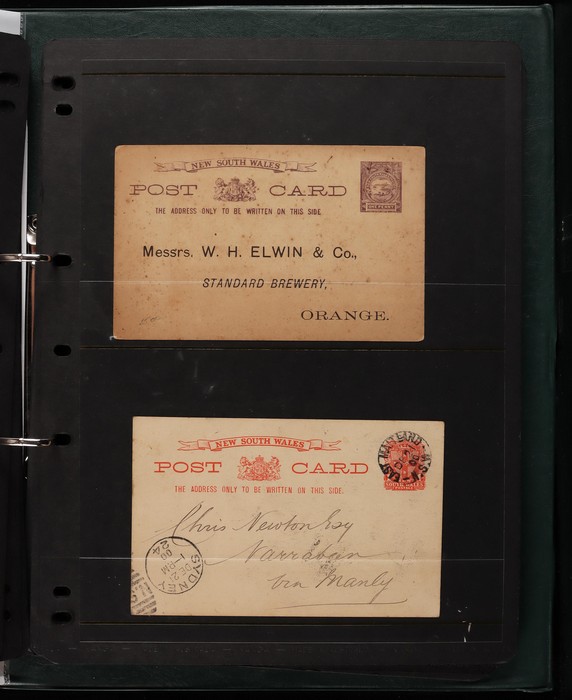 NEW SOUTH WALES
POST CARD
THE ADDRESS ONLY TO BE WRITTEN ON THIS SIDE.
ONE PENNY
Messrs. W. H. ELWIN & Co.,
STANDARD BREWERY,
ORANGE.
NEW SOUTH WALES
POST CARD
THE ADDRESS ONLY TO BE WRITTEN ON THIS SIDE.
EAST MAITLAND N.S.W
Chris Newton Esq
Narrabeen
via Manly
SYDNEY
DE 21
1 PM
00
24